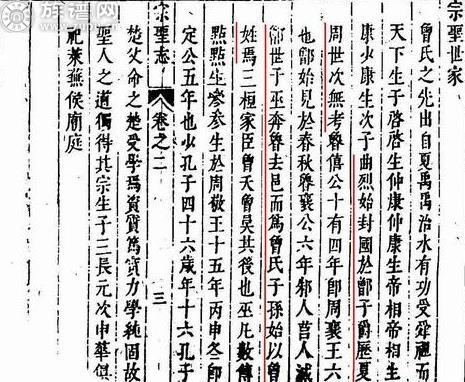 族谱网
宗聖世家
曾氏之先出自夏禹禹治水有功受舜禪而
天下生子啓啓生仲康仲康生帝相帝相生
康少康生次子曲烈始封國於鄫子爵歷夏
周世次無考魯僖公十有四年卽周襄王六
也鄫始見於春秋魯襄公六年邾人莒人滅
鄫世子巫奔魯去邑而爲曾氏子孫始以曾
姓焉三桓家臣曾夭曾其後也巫凡數傳
點點生參參生於周敬王十五年丙申冬卽
定公五年也少孔子四十六歲年十六孔子
宗聖志 卷之二 三
楚父命之楚受學焉質爲實力學純固故
聖人之道獨得其宗生子三長元次申華俱
祀萊蕪侯廟庭